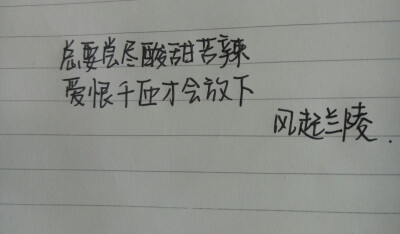 总要尝尽酸甜苦辣
爱恨千匝才会放下
风起兰陵.